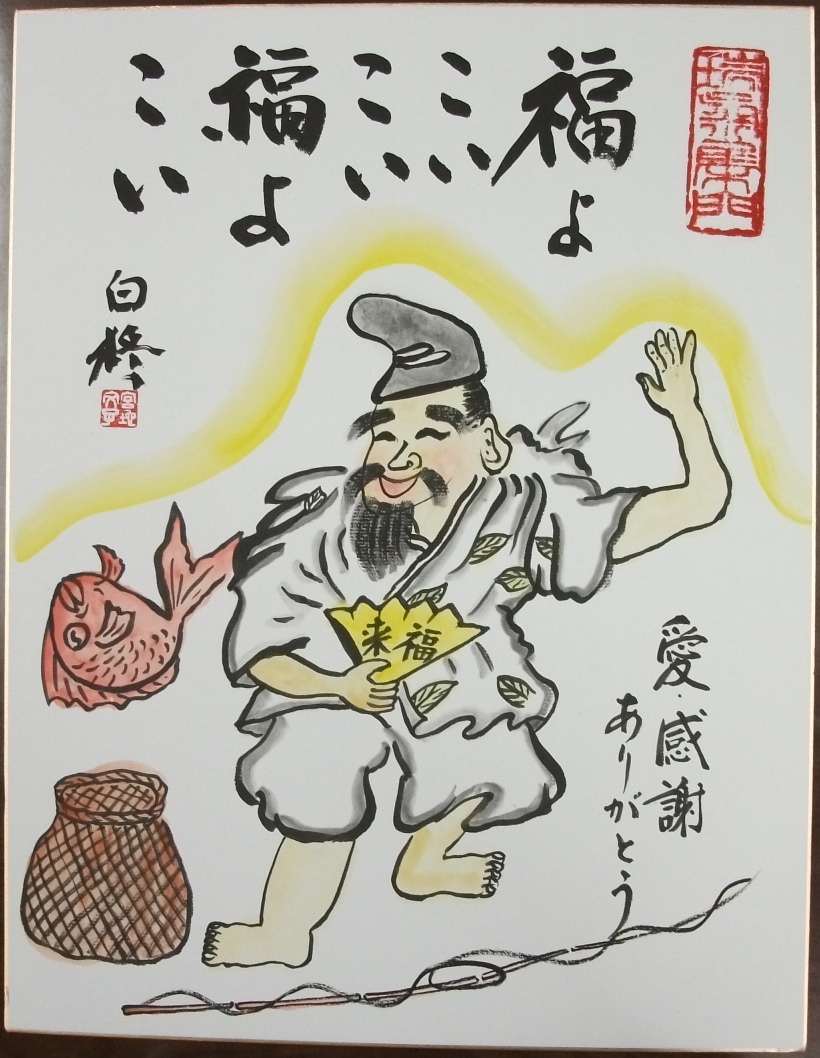 福よ
こい
こい
福よ
こい
来福
愛・感謝
ありがとう